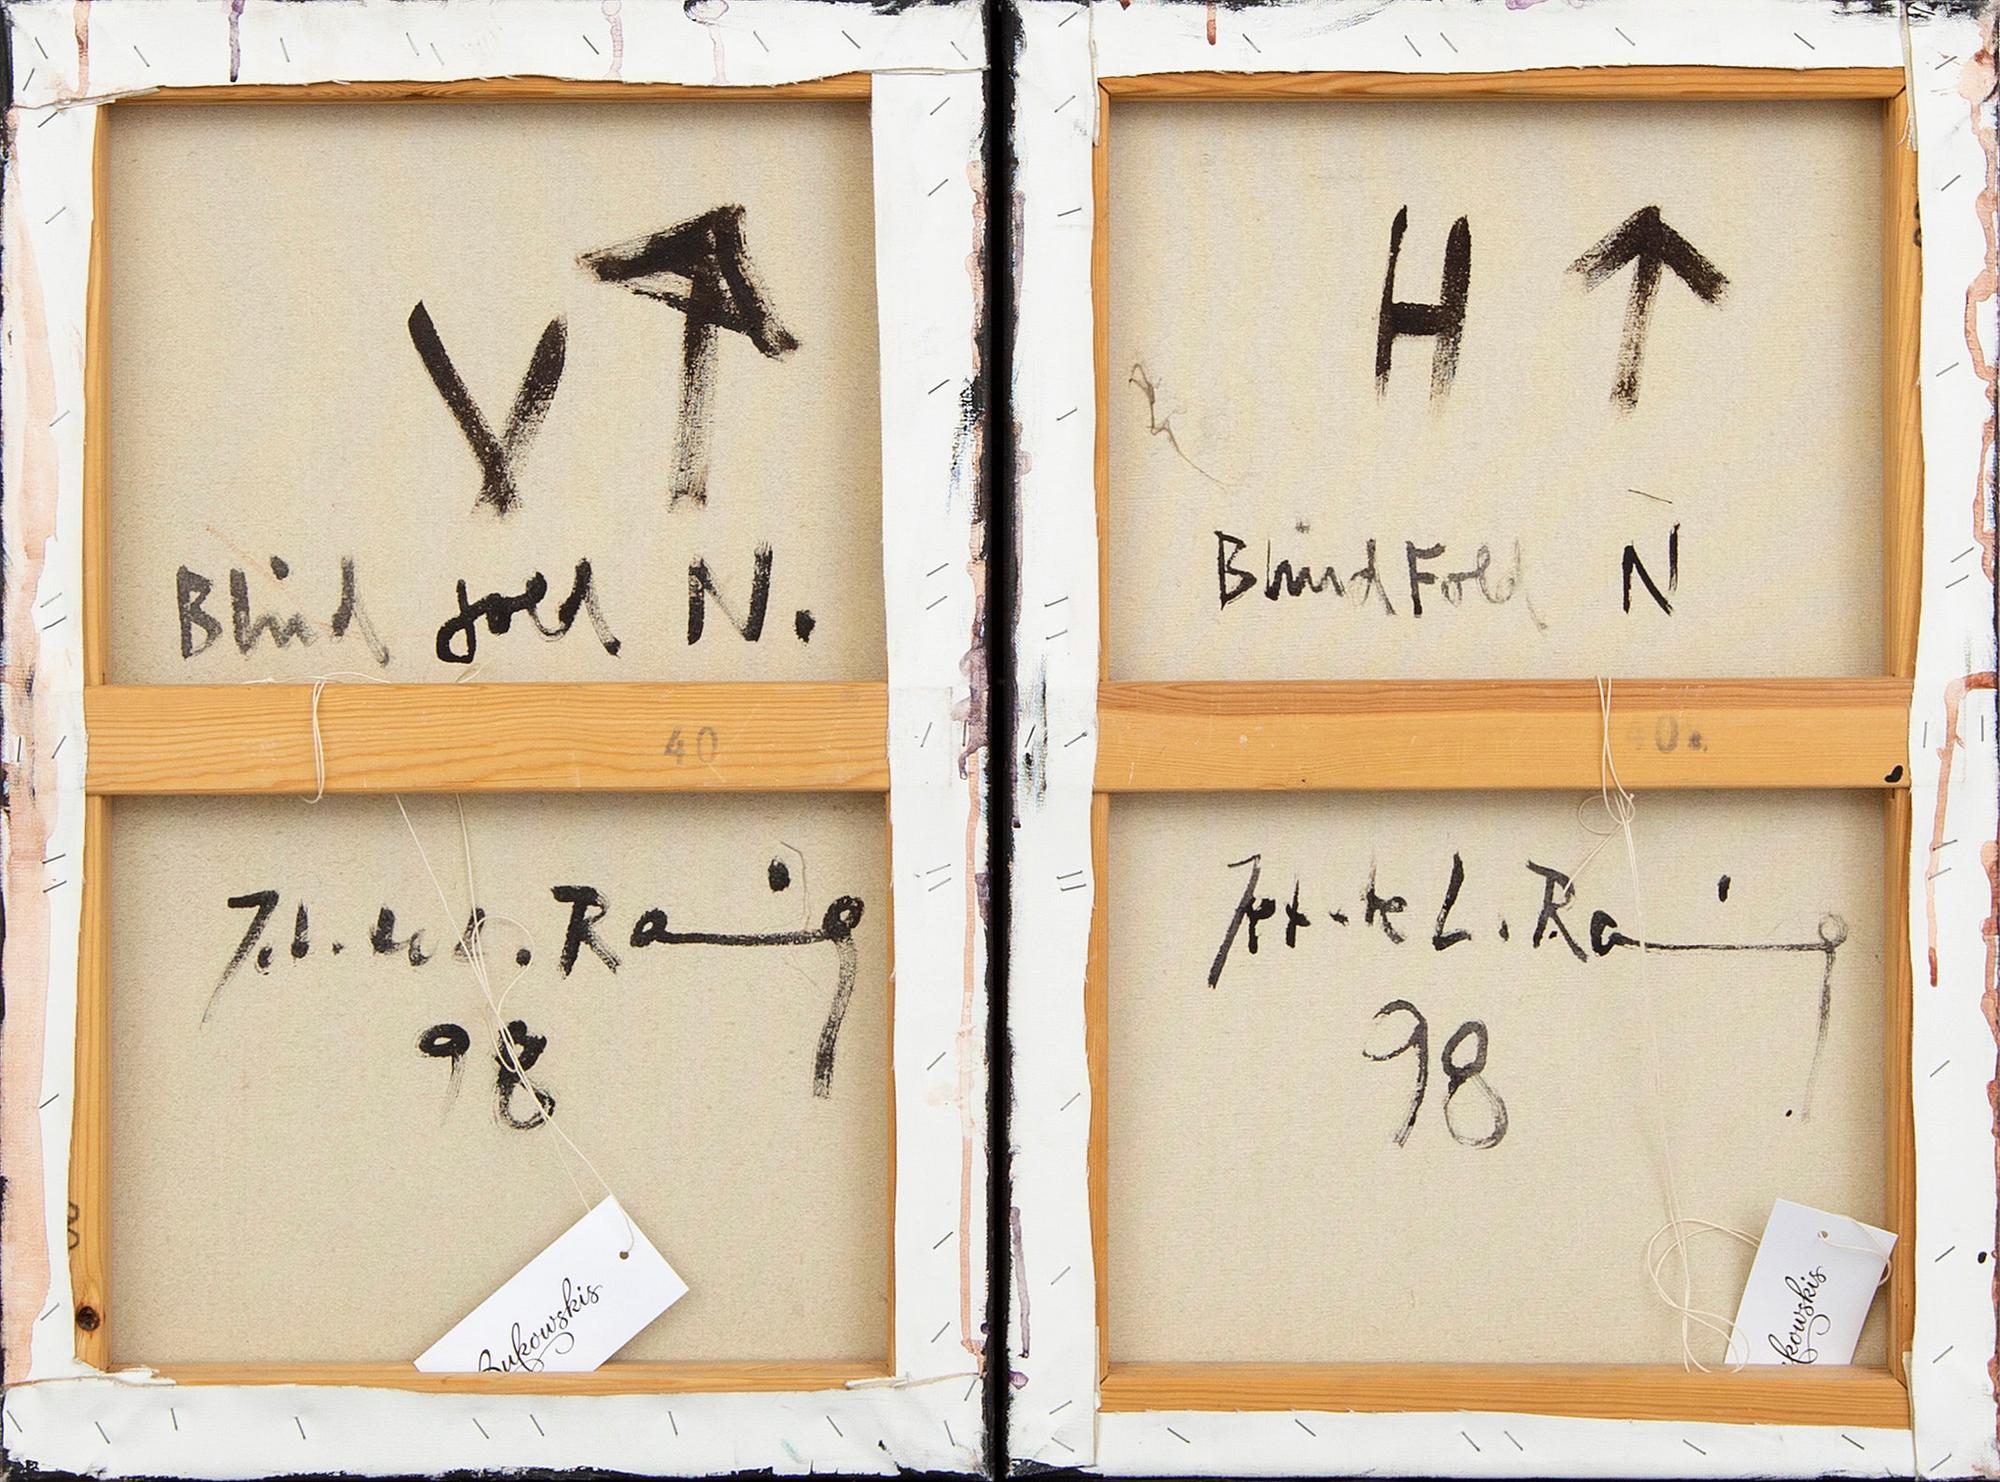 V
Blind fold N.
40
Raing
98
Bukowskis
H
Blind Fold N
40.
L. Raing
98
kowskis